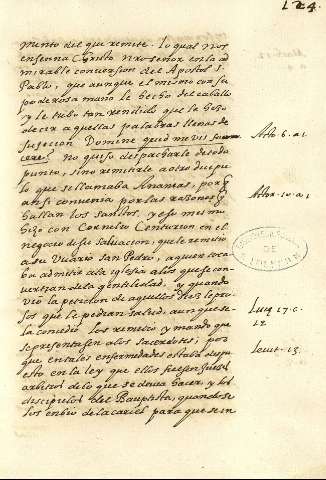 124.
mento del que remite. lo qual nos
enseña Cristo nro señor en la ad
mirable conuersion del Apostol S.
Pablo, que aunque el mismo con su
poderosa mano le hecho del cauallo
y le tubo tan rendido que le hizo
decir aquellas palabras llenas de
sujecion Domine quid me vis
cere? no quiso despacharle desde
punto, sino remitirle a otro discipu
lo que se llamaba Ananias, porq
ansi conuenia por las razones q
hallan los santos, y eso mismo
hizo con Cornelio Centurion en el
negocio de su saluacion, que le remitio
a su Vicario san Pedro, a quien toca
ba admitir a la iglesia a los que se con
uertian de la gentilidad. y quando
vio la peticion de aquellos diez lepro
sos que le pedian salud, aunque se
la concedio los remitio y mando que
se presentasen a los sacerdotes; por
que en tales enfermedades estaba dispu
esto en la ley que ellos fuesen
arbitros de lo que se deuia hacer, y los
discipulos del Bauptista, quando se
los enbio de la carcel para que se in
Acto 6. a 1.
Actor. 10. a 1
DE
Luc 17. c.
12.
Leuit. 13.